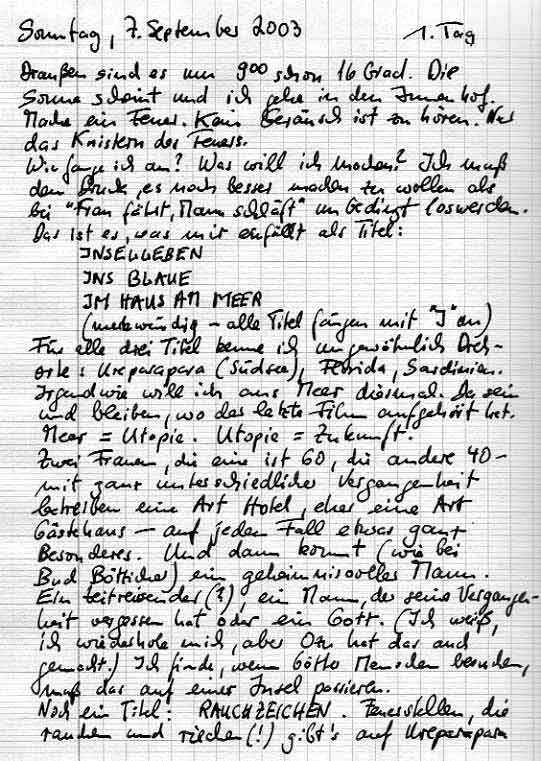 Sonntag, 7. September 2003 1. Tag
Draußen sind es um 9⁰⁰ schon 16 Grad. Die
Sonne scheint und ich gehe in den Innenhof.
Mache ein Feuer. Kein Geräusch ist zu hören. Nur
das Knistern des Feuers.
Wie fange ich an? Was will ich machen? Ich muß
den Druck, es noch besser machen zu wollen als
bei "Frau fährt, Mann schläft" unbedingt loswerden.
Das ist es, was mir einfällt als Titel:
INSELLEBEN
INS BLAUE
IM HAUS AM MEER
(merkwürdig – alle Titel fangen mit "I" an)
Für alle drei Titel kenne ich ungewöhnlich Dreh-
orte: Ureparapara (Südsee), Florida, Sardinien.
Irgendwie will ich ans Meer diesmal. Da sein
und bleiben, wo das letzte Film aufgehört hat.
Meer = Utopie. Utopie = Zukunft.
Zwei Frauen, die eine ist 60, die andere 40 –
mit ganz unterschiedlicher Vergangenheit
betreiben eine Art Hotel, eher eine Art
Gästehaus – auf jeden Fall etwas ganz
Besonderes. Und dann kommt (wie bei
Bud Bötticher) ein geheimnisvoller Mann.
Ein Zeitreisender (?), ein Mann, der seine Vergangen-
heit vergessen hat oder ein Gott. (Ich weiß,
ich wiederhole mich, aber Ozu hat das auch
gemacht.) Ich finde, wenn Götter Menschen besuchen,
muß das auf einer Insel passieren.
Noch ein Titel: RAUCHZEICHEN. Feuerstellen, die
rauchen und riechen (!) gibt's auf Ureparapara